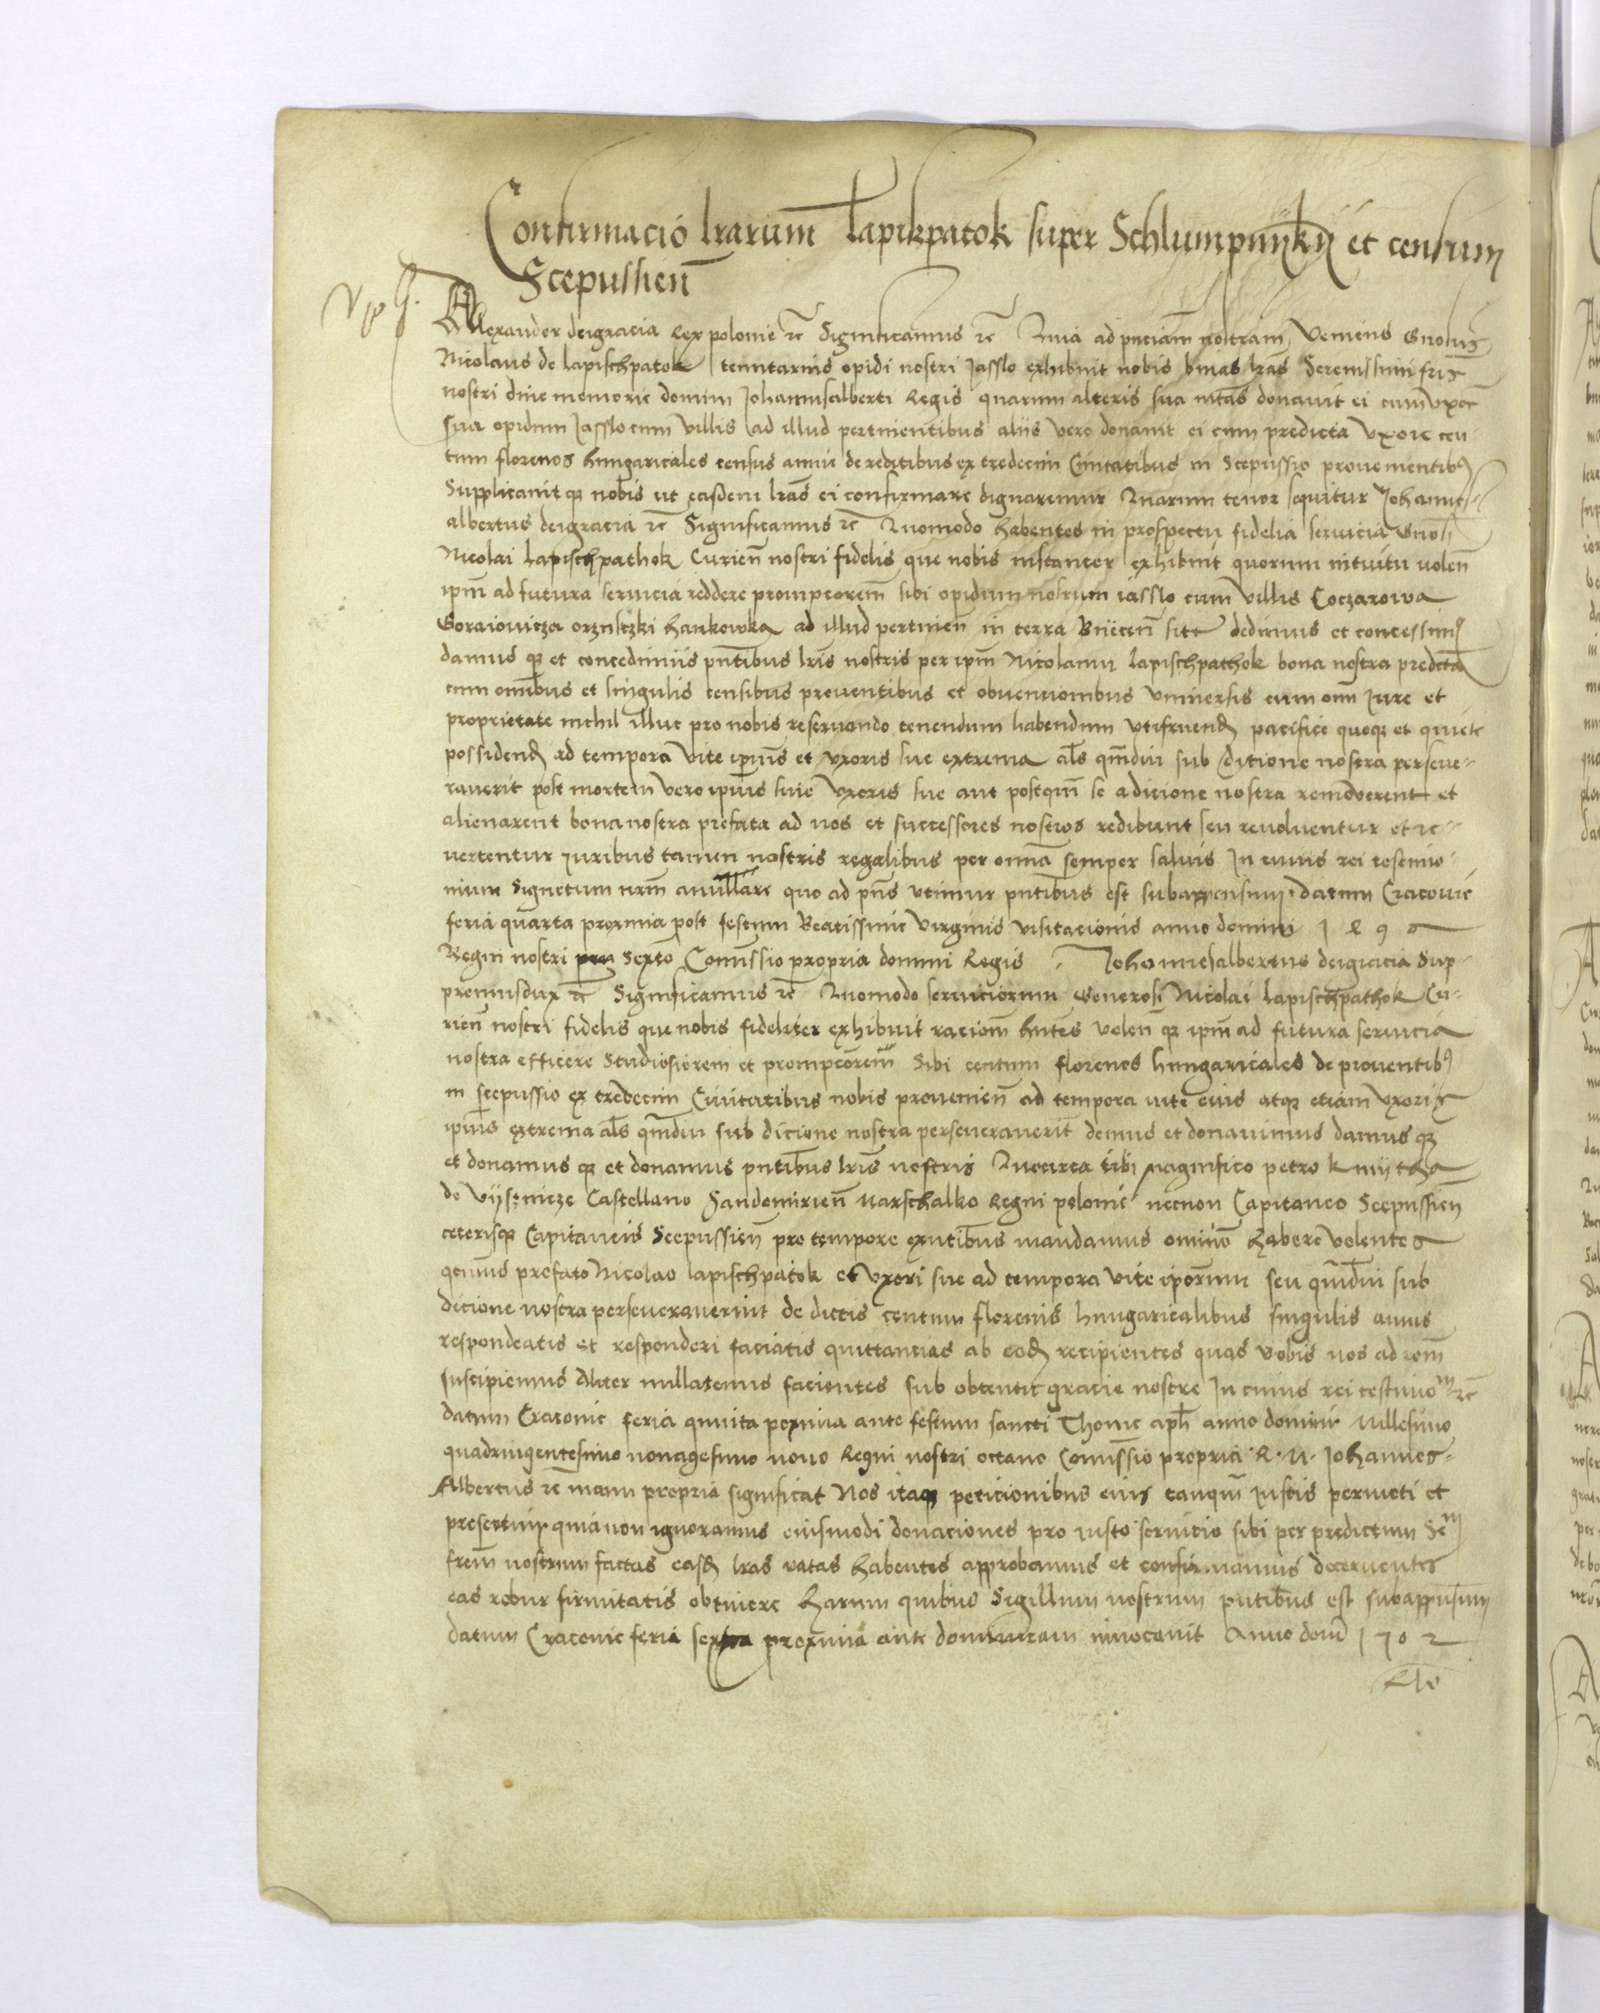 Confirmacio lrarum Lapikpatok super Schlumpnijkij et censum
Scepussien
Allexander deigracia Rex polonie rc Significamus rc Quia ad pnciam nostram veniens Gnosus
Nicolaus de lapischpatok tenutarius opidi nostri Jasslo exhibuit nobis binas lras Serenissimi fris
nostri dive memorie domini Johannisalberti Regis quarum alteris sua mtas donavit ei cum uxore
sua opidum Jasslo cum villis ad illud pertinentibus aliis vero donavit ei cum predicta uxore cen
tum florenos hungaricales census annui de reditibus ex tredecim Civitatibus in Scepussio provenientibus
Supplicavit q nobis ut easdem lras ei confirmare dignaremur Quarum tenor sequitur Johannes
albertus deigracia rc Significamus rc Quomodo habentes in prospectu fidelia servicia Gnosi
Nicolai lapischpathok Curien nostri fidelis que nobis instanter exhibuit quorum intuitu volen
ipm ad futura servicia reddere prompciorem sibi opidum nostrum iasslo cum villis Coczarowa
Goraiowicza orznisczki hankowka ad illud pertinen in terra Biecen sitt dedimus et concessimus
damus q et concedimus pntibus lris nostris per ipm Nicolaum lapischpathok bona nostra predicta
cum omibus et singulis censibus proventibus et obvencionibus universis cum omi Jure et
proprietate nichil illuc pro nobis reservando tenendum habendum utifruend pacifice quoq et quiete
possidend ad tempora vite ipius et uxoris sue extrema als qmdiu sub ditione nostra perseve
raverit post mortem vero ipius sive uxoris sue aut postqm se a dicione nostra removerent et
alienarent bona nostra prefata ad nos et successores nostros redibunt seu revolventur et re
vertentur Juribus tamen nostris regalibus per omnia semper salvis In cuius rei testimo
nium Signetum nrm anullare quo ad pns utimur pntibus est subappensum datum Cracovie
feria quarta proxima post festum Beatissime virginis visitacionis anno domini
Regni nostri Sexto Comissio propria domini Regis Johannesalbertus deigracia Sup
premusdux rc Significamus rc Quomodo serviciorum Generosi Nicolai lapischpathok Cu
rien nostri fidelis que nobis fideliter exhibuit raciom hntes volen q ipm ad futura servicia
nostra efficere Studiosiorem et prompciorem Sibi centum florenos hungaricales de proventibus
in scepussio ex tredecim Civitatibus nobis provenien ad tempora vite eius atq etiam uxoris
ipius extrema als qmdiu sub dicione nostra perseveraverit demus et donavimus damus q
et donamus q et donamus pntibus lris nostris Quocirca tibi magnifico petro kmijtha
de vijsznicze Castellano Sandomirien marschalko Regni polonie necnon Capitaneo Scepussien
ceterisq Capitaneis Scepussien pro tempore exntibus mandamus omnino habere volentes
qtinus prefato Nicolao lapischpatok et uxori sue ad tempora vite iporum seu qmdiu sub
dicione nostra perseveraverint de dictis centum florenis hungaricalibus singulis annis
respondeatis et responderi faciatis quittancias ab eod recipientes quas vobis nos ad rom
suscipiemus Aliter nullatenus facientes sub obtentu gracie nostre In cuius rei testimom rc
datum Cracovie feria quinta proxima ante festum sancti Thome apli anno domini Millesimo
quadringentesimo nonagesimo novo Regni nostri octavo Comissio propria R M Johannes
Albertus rc manu propria significat Nos itaq peticionibus eius tanqm Justis permoti et
presertim quia non ignoramus eiusmodi donaciones pro iusto servicio sibi per predictum Sem
frem nostrum factas easd lras ratas habentes approbamus et confirmamus decernentes
eas robur firmitatis obtinere Harum quibus Sigillum nostrum pntibus est subappensum
datum Cracovie feria sexta proxima ante dominicam invocavit Anno domi 1502